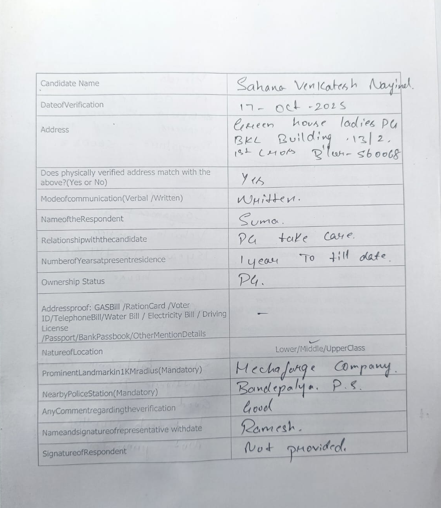 Candidate Name Sahana Venkatesh Nayinel
DateofVerification 17- Oct -2025
Address Green house ladies PG
BKL Building .13/2.
1st Cross B'lore- 560068
Does physically verified address match with the
above?(Yes or No) Yes
Modeofcommunication(Verbal /Written) Written.
NameoftheRespondent Suma.
Relationshipwiththecandidate PG take care.
NumberofYearsatpresentresidence 1 year To till date.
Ownership Status PG.
Addressproof: GASBill /RationCard /Voter
ID/TelephoneBill/Water Bill / Electricity Bill / Driving
License
/Passport/BankPassbook/OtherMentionDetails -
NatureofLocation Lower/Middle/UpperClass
ProminentLandmarkIn1KMradius(Mandatory) Mechaforge Company.
NearbyPoliceStation(Mandatory) Bandepalya. P.S.
AnyCommentregardingtheverification Good
Nameandsignatureofrepresentative withdate Ramesh.
SignatureofRespondent Not provided.